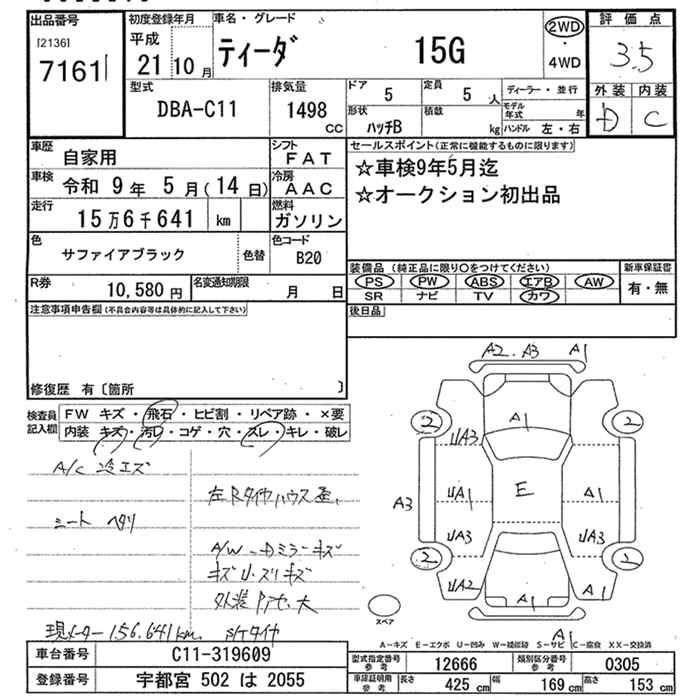 出品番号
[2136]
7161
初度登録年月
平成
21年10月
車名・グレード
ティーダ 15G
2WD
・
4WD
評価点
3.5
外装 内装
D C
型式
DBA-C11
排気量
1498
CC
ドア
5
定員
5人
形状
ハッチB
積載
kg
ディーラー・並行
モデル年式 年
ハンドル 左・右
車歴
自家用
シフト
FAT
車検
令和9年5月(14日)
冷房
AAC
走行
15万6千641 km
燃料
ガソリン
色
サファイアブラック
色替
色コード
B20
セールスポイント(正常に機能するものに限ります)
☆車検9年5月迄
☆オークション初出品
R券
10,580円
名変通知期限
月 日
装備品(純正品に限り〇をつけてください)
PS PW ABS エアB AW
SR ナビ TV カワ
新車保証書
有・無
後日品
注意事項申告欄(不具合内容等は具体的に記入して下さい)
修復歴 有〔箇所 〕
検査員記入欄
FW キズ・飛石・ヒビ割・リペア跡・×要
内装 キズ・汚レ・コゲ・穴・スレ・キレ・破レ
シート ヘタリ
A/W
外装
現メーター 156.641km
A2.A3 A1
2 A1 2
UA3
A3 UA1 E A1
UA3 UA3
2 2
UA2 A1 A1
A1
スペア
A-キズ E-エクボ U-凹み W-補修跡 S-サビ C-腐食 XX-交換済
車台番号
C11-319609
登録番号
宇都宮 502 は 2055
型式指定番号
参考
12666
類別区分番号
参考
0305
車庫証明用
参考
長さ 425 cm
幅 169 cm
高さ 153 cm